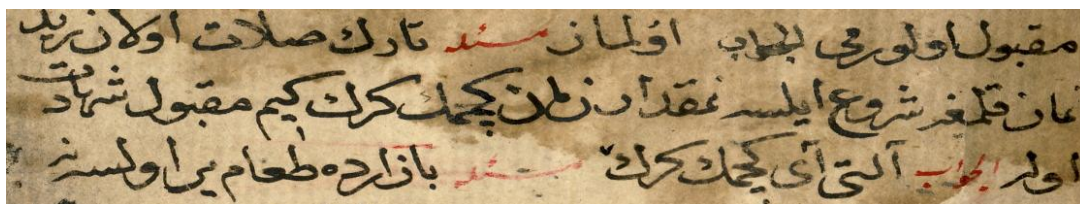 مقبول اولور می الجواب اولماز مسئله تارك صلات اولان زيد
نماز قلمغه شروع ايلسه نمقدار زمان كچمك كرك كيم مقبول شهادت
اولر الجواب آلتی آی كچمك كرك مسئله بازارده طعام ير اولسه